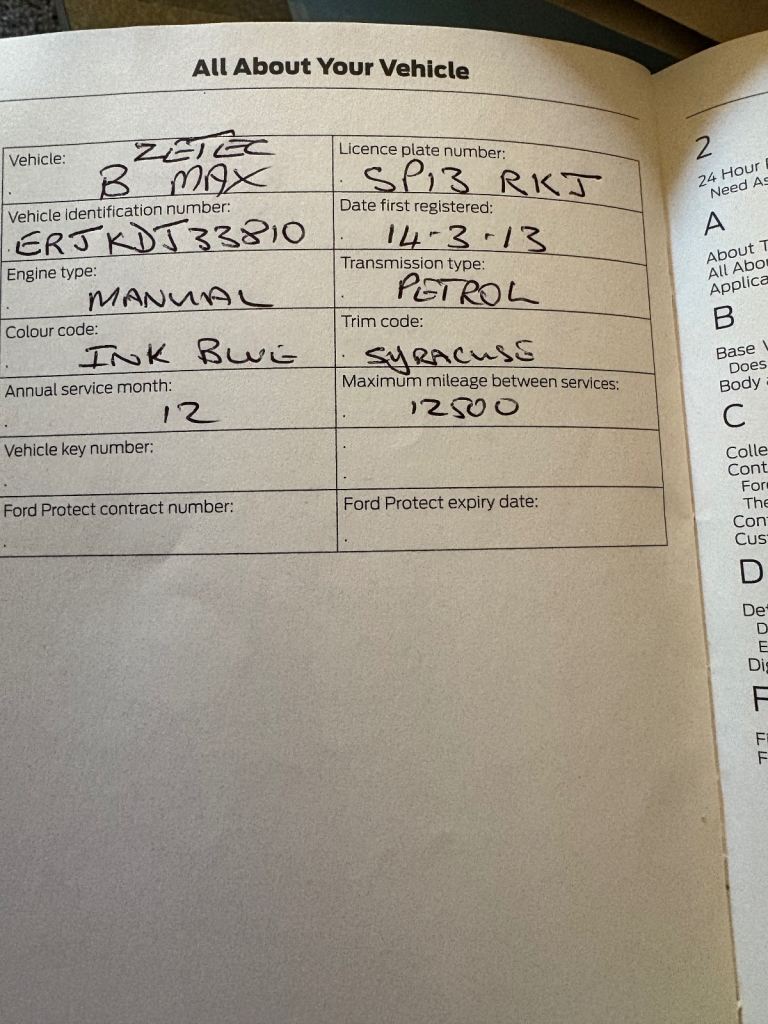 All About Your Vehicle
Vehicle: ZETEC
B MAX
Licence plate number:
SP13 RKJ
Vehicle identification number:
ERJKDJ33810
Date first registered:
14-3-13
Engine type:
MANUAL
Transmission type:
PETROL
Colour code:
INK BLUE
Trim code:
SYRACUSE
Annual service month:
12
Maximum mileage between services:
12500
Vehicle key number:
Ford Protect contract number:
Ford Protect expiry date:
2
24 Hour
Need As
A
About T
All Abou
Applica
B
Base
Does
Body
C
Colle
Cont
For
The
Con
Cus
D
Det
D
E
Dig
F
F
F